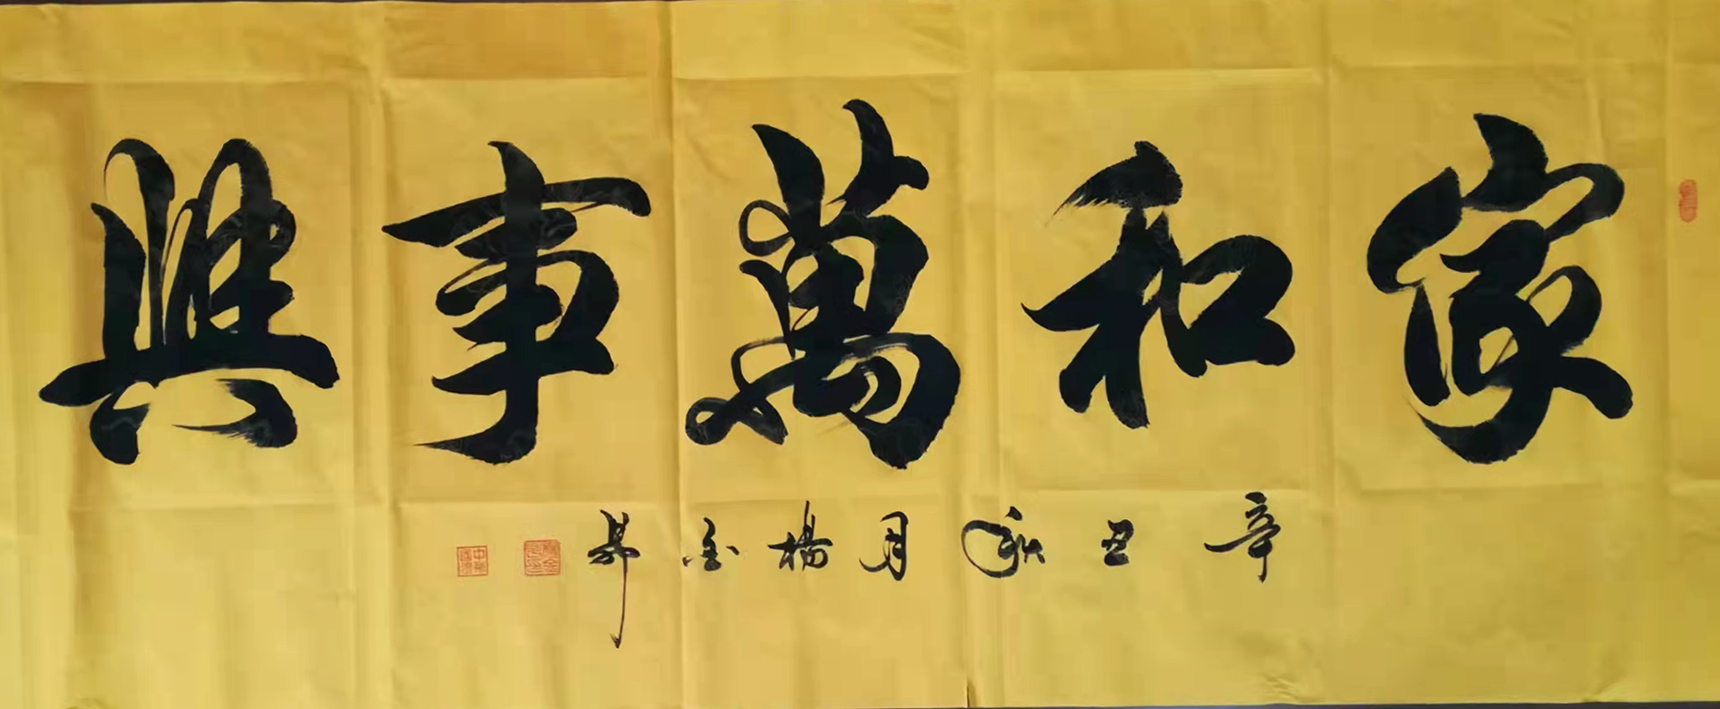 家和萬事興
辛丑秋月楊金昇